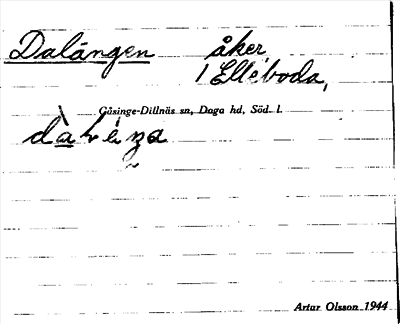 Dalängen åker
i Elleboda,
Gåsinge-Dillnäs sn, Daga hd, Söd. l.
Artur Olsson 1944